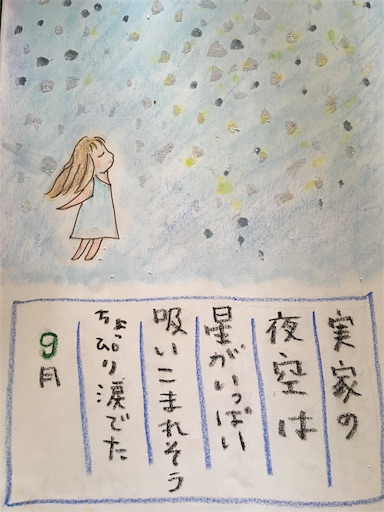 実家の
夜空は
星がいっぱい
吸いこまれそう
ちょっぴり涙でた
9月